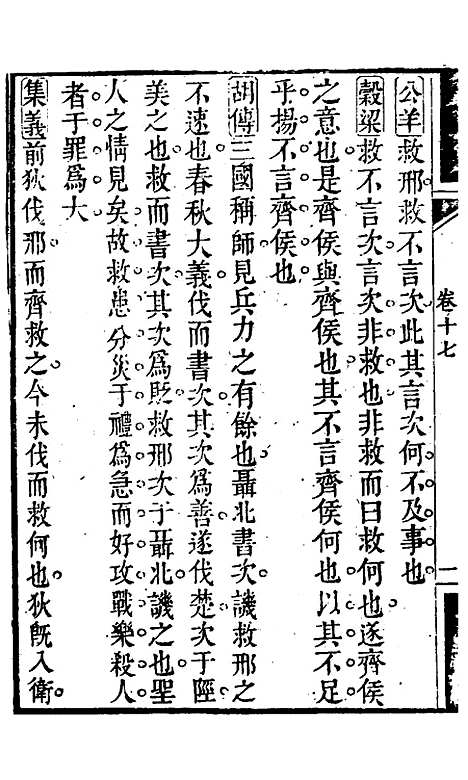 卷十七
一
公羊救邢救不言次此其言次何不及事也
穀梁救不言次言次非救也非救而曰救何也遂齊侯
之意也是齊侯與齊侯也其不言齊侯何也以其不足
乎揚不言齊侯也
胡傳三國稱師見兵力之有餘也聶北書次譏救邢之
不速也春秋大義伐而書次其次為善遂伐楚次于陘
美之也救而書次其次為貶救邢次于聶北譏之也聖
人之情見矣故救患分災于禮為急而好攻戰樂殺人
者于罪為大
集義前狄伐邢而齊救之今未伐而救何也狄既入衛